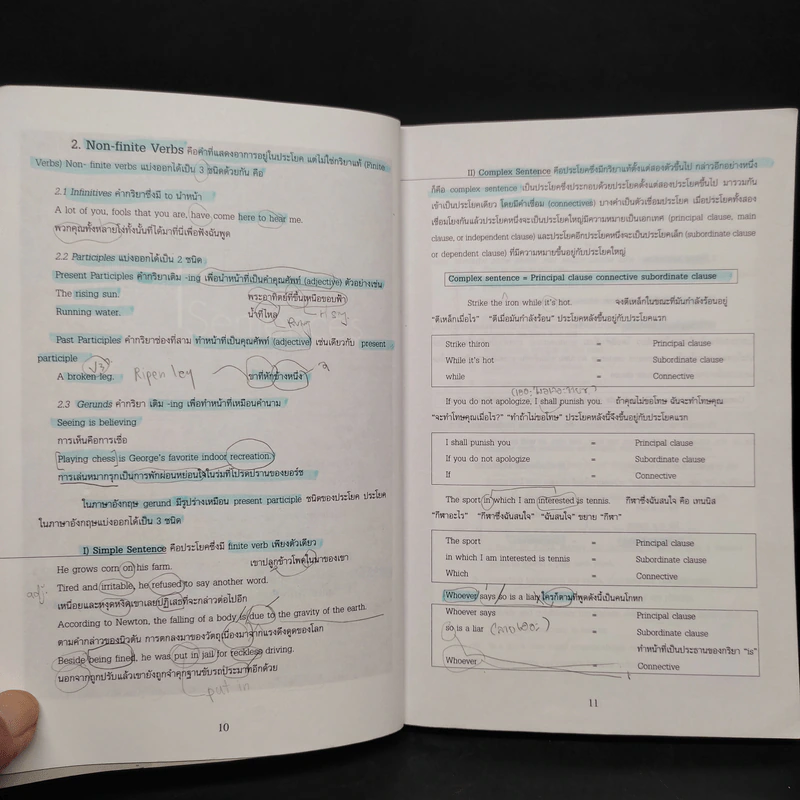 2. Non-finite Verbs คือคำที่แสดงอาการอยู่ในประโยค แต่ไม่ใช่กริยาแท้ (Finite
Verbs) Non- finite verbs แบ่งออกได้เป็น 3 ชนิดด้วยกัน คือ
2.1 Infinitives คำกริยาซึ่งมี to นำหน้า
A lot of you, fools that you are, have come here to hear me.
พวกคุณทั้งหลายโง่ทั้งนั้นที่ได้มาที่นี่เพื่อฟังฉันพูด
2.2 Participles แบ่งออกได้เป็น 2 ชนิด
Present Participles คำกริยาเติม -ing เพื่อนำหน้าที่เป็นคำคุณศัพท์ (adjective) ตัวอย่างเช่น
The rising sun. พระอาทิตย์ที่ขึ้นเหนือขอบฟ้า
Running water. น้ำที่ไหล
Past Participles คำกริยาช่องที่สาม ทำหน้าที่เป็นคุณศัพท์ (adjective) เช่นเดียวกับ present
participle
V3
A broken leg. Ripen ley ขาที่หักข้างหนึ่ง
2.3 Gerunds คำกริยา เติม -ing เพื่อทำหน้าที่เหมือนคำนาม
Seeing is believing
การเห็นคือการเชื่อ
Playing chess is George's favorite indoor recreation.
การเล่นหมากรุกเป็นการพักผ่อนหย่อนใจในร่มที่โปรดปรานของยอร์ช
ในภาษาอังกฤษ gerund มีรูปร่างเหมือน present participle ชนิดของประโยค ประโยค
ในภาษาอังกฤษแบ่งออกได้เป็น 3 ชนิด
I) Simple Sentence คือประโยคซึ่งมี finite verb เพียงตัวเดียว
He grows corn on his farm. เขาปลูกข้าวโพดในนาของเขา
adj. Tired and irritable, he refused to say another word.
เหนื่อยและหงุดหงิดเขาเลยปฏิเสธที่จะกล่าวต่อไปอีก
According to Newton, the falling of a body is due to the gravity of the earth.
ตามคำกล่าวของนิวตัน การตกลงมาของวัตถุเนื่องมาจากแรงดึงดูดของโลก
Beside being fined, he was put in jail for reckless driving.
นอกจากถูกปรับแล้วเขายังถูกจำคุกฐานขับรถประมาทอีกด้วย
put in
10
II) Complex Sentence คือประโยคซึ่งมีกริยาแท้ตั้งแต่สองตัวขึ้นไป กล่าวอีกอย่างหนึ่ง
ก็คือ complex sentence เป็นประโยคซึ่งประกอบด้วยประโยคตั้งแต่สองประโยคขึ้นไป มารวมกัน
เข้าเป็นประโยคเดียว โดยมีคำเชื่อม (connectives) บางคำเป็นตัวเชื่อมประโยค เมื่อประโยคทั้งสอง
เชื่อมโยงกันแล้วประโยคหนึ่งจะเป็นประโยคใหญ่มีความหมายเป็นเอกเทศ (principal clause, main
clause, or independent clause) และประโยคอีกประโยคหนึ่งจะเป็นประโยคเล็ก (subordinate clause
or dependent clause) ที่มีความหมายขึ้นอยู่กับประโยคใหญ่
Complex sentence = Principal clause connective subordinate clause
Strike the iron while it's hot. จงตีเหล็กในขณะที่มันกำลังร้อนอยู่
"ตีเหล็กเมื่อไร" "ตีเมื่อมันกำลังร้อน" ประโยคหลังขึ้นอยู่กับประโยคแรก
Strike thiron = Principal clause
While it's hot = Subordinate clause
while = Connective
If you do not apologize, I shall punish you. ถ้าคุณไม่ขอโทษ ฉันจะทำโทษคุณ
"จะทำโทษคุณเมื่อไร?" "ทำถ้าไม่ขอโทษ" ประโยคหลังนี้จึงขึ้นอยู่กับประโยคแรก
I shall punish you = Principal clause
If you do not apologize = Subordinate clause
If = Connective
The sport in which I am interested is tennis. กีฬาซึ่งฉันสนใจ คือ เทนนิส
"กีฬาอะไร" "กีฬาซึ่งฉันสนใจ" "ฉันสนใจ" ขยาย "กีฬา"
The sport = Principal clause
in which I am interested is tennis = Subordinate clause
Which = Connective
Whoever says so is a liar, ใครก็ตามที่พูดดังนี้เป็นคนโกหก
Whoever says = Principal clause
so is a liar = Subordinate clause
ทำหน้าที่เป็นประธานของกริยา "is"
Whoever = Connective
11